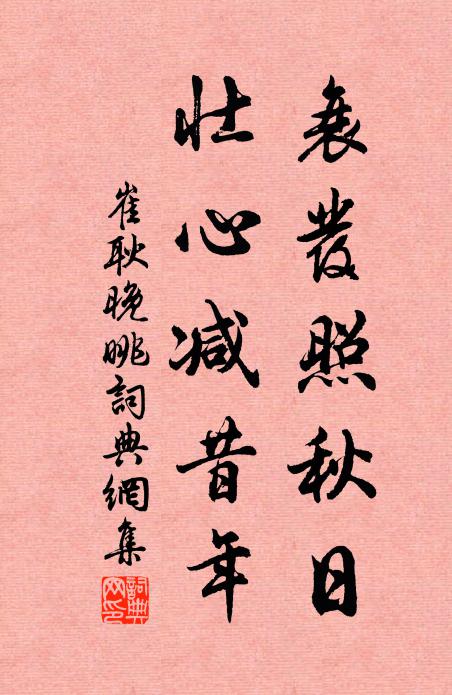 衰发照秋日
壮心减昔年
崔耿晚眺詞典網集
詞典网印